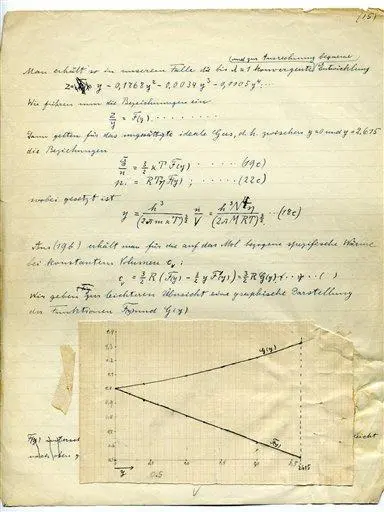 (15)
(und zur Ausrechnung bequeme
Man erhält so in unserem Falle die bis λ=1 konvergente Entwicklung
z = y − 0,1768 y² − 0,0034 y³ − 0,0005 y⁴ ...
Wir führen nun die Bezeichnungen ein
z/y = F(y) . . . . . . . .
Dann gelten für das ungesättigte ideale Gas, d. h. zwischen y=0 und y=2,615
die Beziehungen
Ē/n = 3/2 κ T F(y) . . . . . (19c)
p = R T η F(y) ; . . . . . (22c)
wobei gesetzt ist
y = h³/(2π m κ T)^3/2 n/V = h³ N⁴ η/(2π M R T)^3/2 ... (18c)
Aus (19b) erhält man für die auf das Mol bezogene spezifische Wärme
bei konstantem Volumen c_v :
c_v = 3/2 R (F(y) − 3/2 y F'(y)) = 3/2 R G(y) . . . . ( )
Wir geben zur leichteren Übersicht eine graphische Darstellung
der Funktionen F(y) und G(y)
G(y)
F(y)
y
0.5
2,615
F(y)